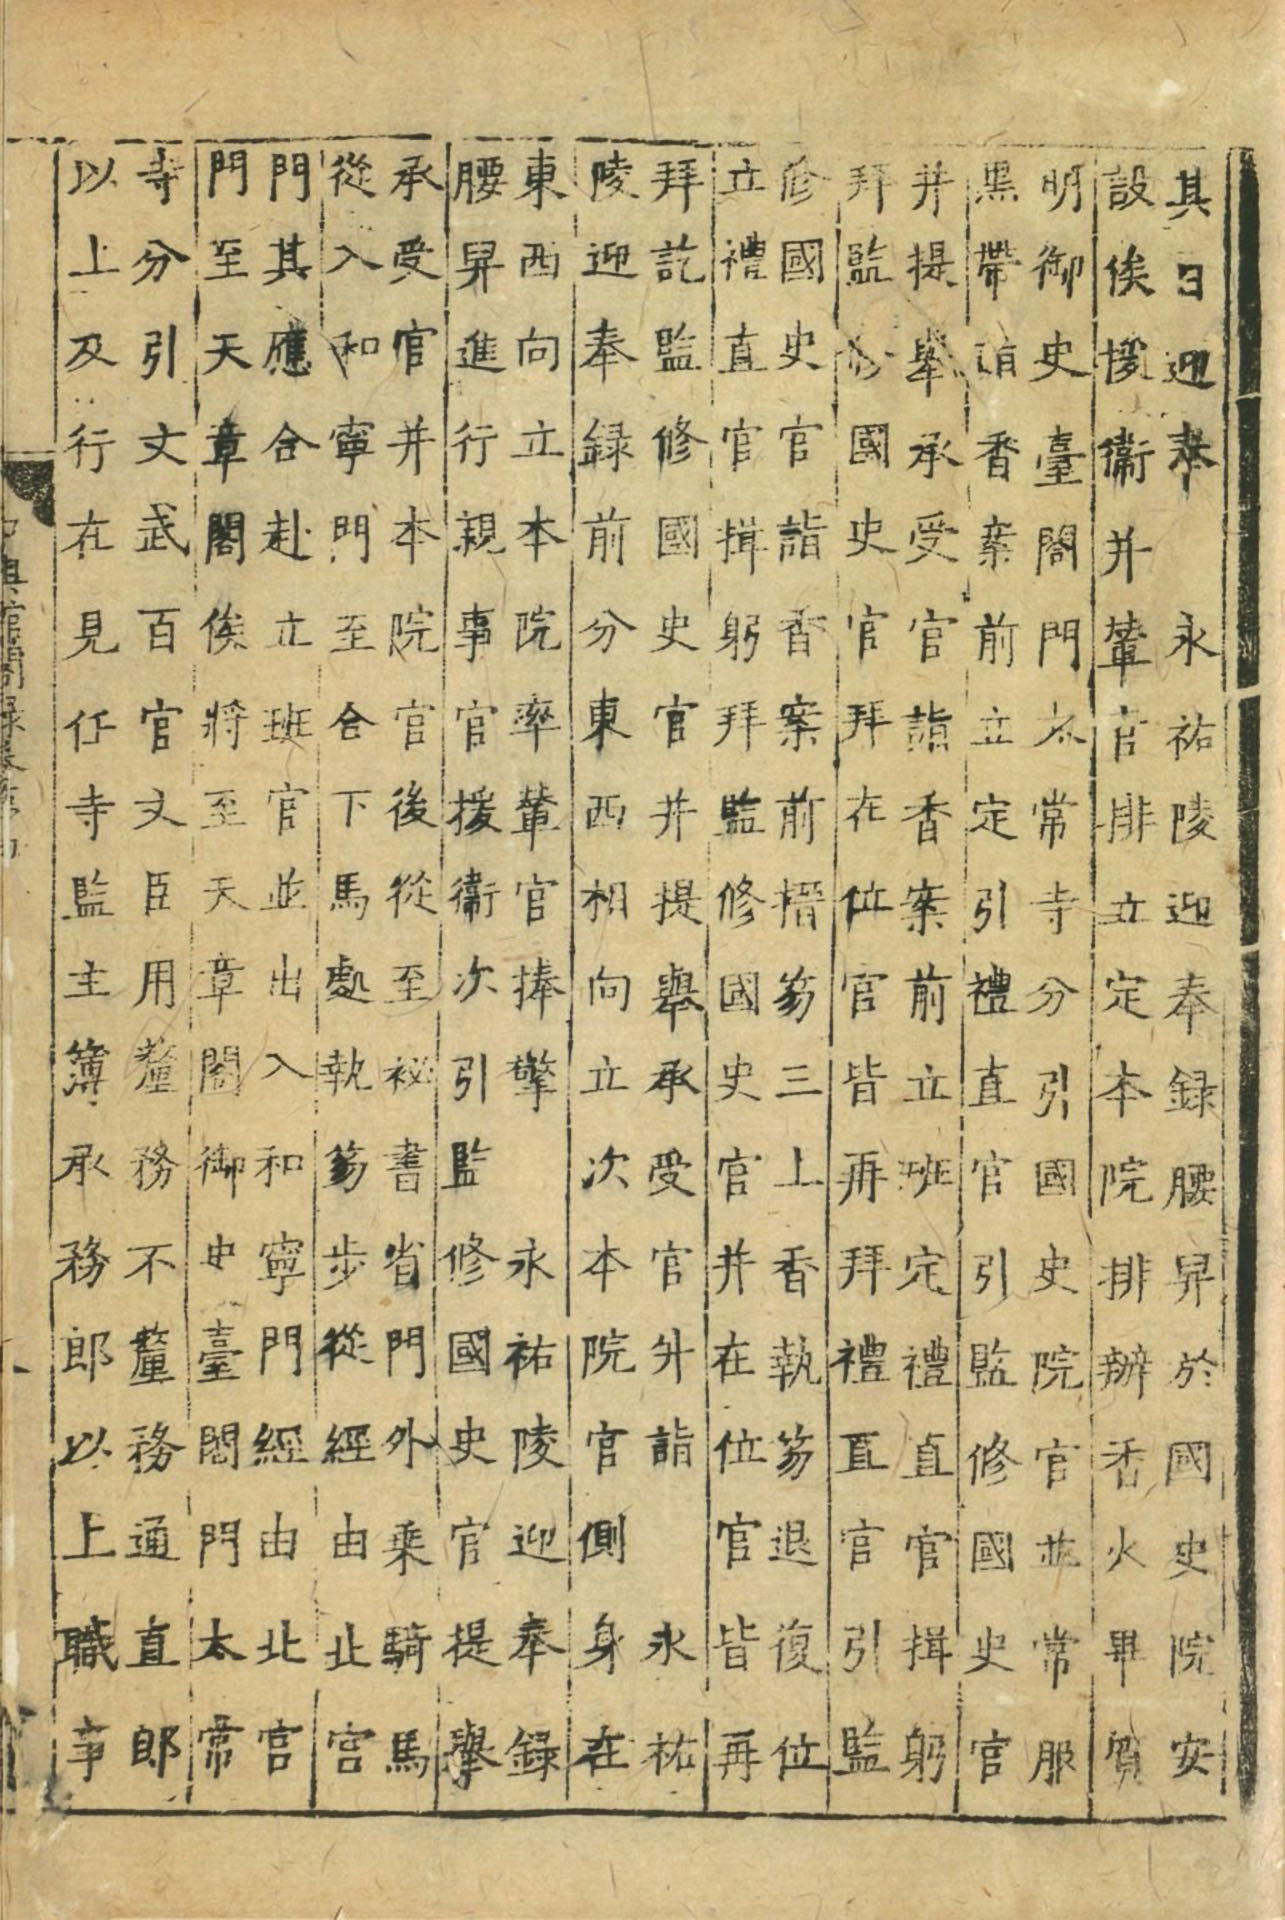 其日迎奉　永祐陵迎奉録腰舁於國史院安
設俟擁衞并輦官排立定本院排辦香火畢質
明御史臺閤門太常寺分引國史院官並常服
黒帶詣香案前立定引禮直官引監修國史官
并提舉承受官詣香案前立班定禮直官揖躬
拜監修國史官拜在位官皆再拜禮直官引監
修國史官詣香案前搢笏三上香執笏退復位
立禮直官揖躬拜監修國史官并在位官皆再
拜訖監修國史官并提舉承受官升詣　永祐
陵迎奉録前分東西相向立次本院官側身在
東西向立本院率輦官捧擎　永祐陵迎奉録
腰舁進行親事官援衞次引監修國史官提舉
承受官并本院官後從至祕書省門外乗騎馬
從入和寧門至合下馬處執笏步從經由北宫
門其應合赴立班官並出入和寧門經由北宫
門至天章閣俟將至天章閣御史臺閤門太常
寺分引文武百官文臣用釐務不釐務通直郎
以上及行在見任寺監主簿承務郎以上職事